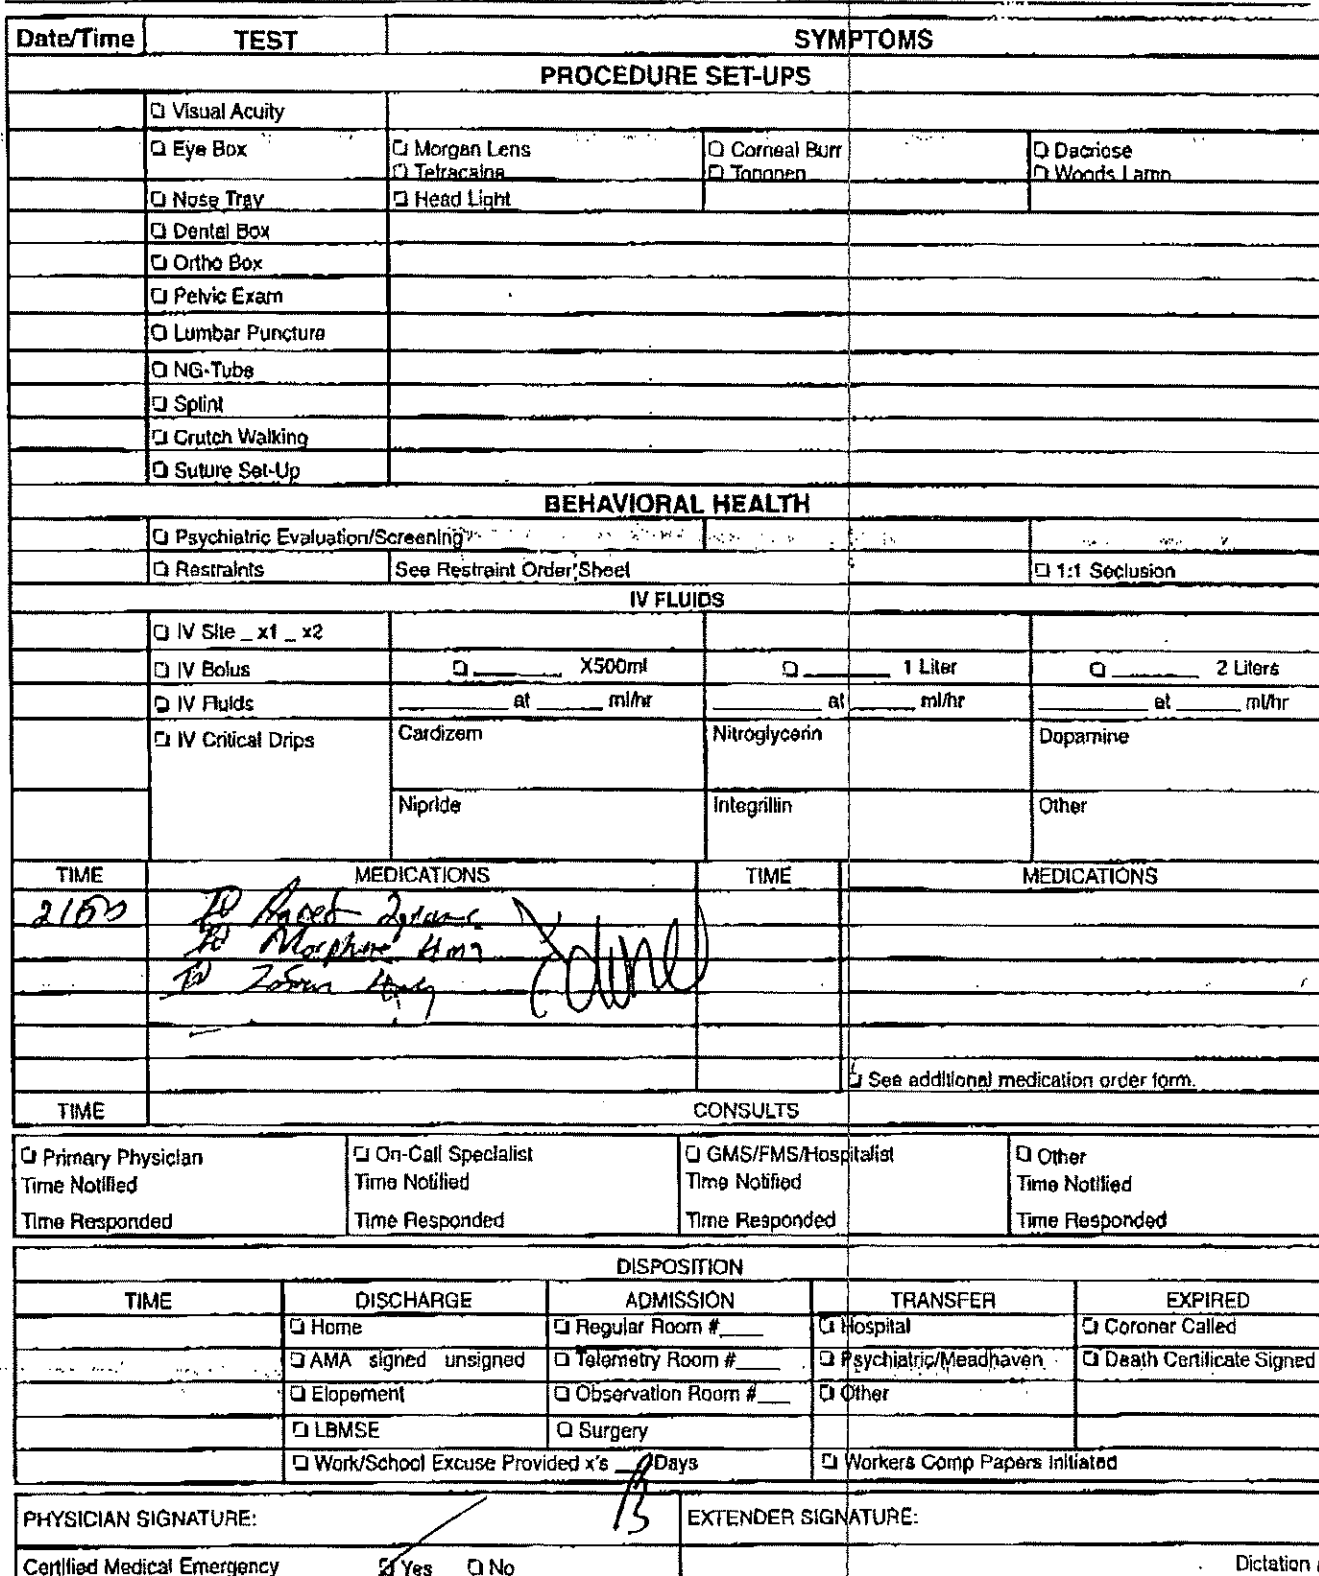 Date/Time TEST SYMPTOMS
PROCEDURE SET-UPS
Visual Acuity
Eye Box Morgan Lens Corneal Burr Dacriose
Tetracaine Tonopen Woods Lamp
Nose Tray Head Light
Dental Box
Ortho Box
Pelvic Exam
Lumbar Puncture
NG-Tube
Splint
Crutch Walking
Suture Set-Up
BEHAVIORAL HEALTH
Psychiatric Evaluation/Screening
Restraints See Restraint Order Sheet 1:1 Seclusion
IV FLUIDS
IV Site _ x1 _ x2
IV Bolus ______ X500ml ______ 1 Liter ______ 2 Liters
IV Fluids ______ at ____ ml/hr ______ at ____ ml/hr ______ at ____ ml/hr
IV Critical Drips Cardizem Nitroglycerin Dopamine
Nipride Integrillin Other
TIME MEDICATIONS TIME MEDICATIONS
Morphine 4mg
Zofran 4mg
See additional medication order form.
TIME CONSULTS
Primary Physician On-Call Specialist GMS/FMS/Hospitalist Other
Time Notified Time Notified Time Notified Time Notified
Time Responded Time Responded Time Responded Time Responded
DISPOSITION
TIME DISCHARGE ADMISSION TRANSFER EXPIRED
Home Regular Room #____ Hospital Coroner Called
AMA signed unsigned Telemetry Room #____ Psychiatric/Meadhaven Death Certificate Signed
Elopement Observation Room #___ Other
LBMSE Surgery
Work/School Excuse Provided x's ___ Days Workers Comp Papers Initiated
PHYSICIAN SIGNATURE: EXTENDER SIGNATURE:
Certified Medical Emergency Yes No Dictation